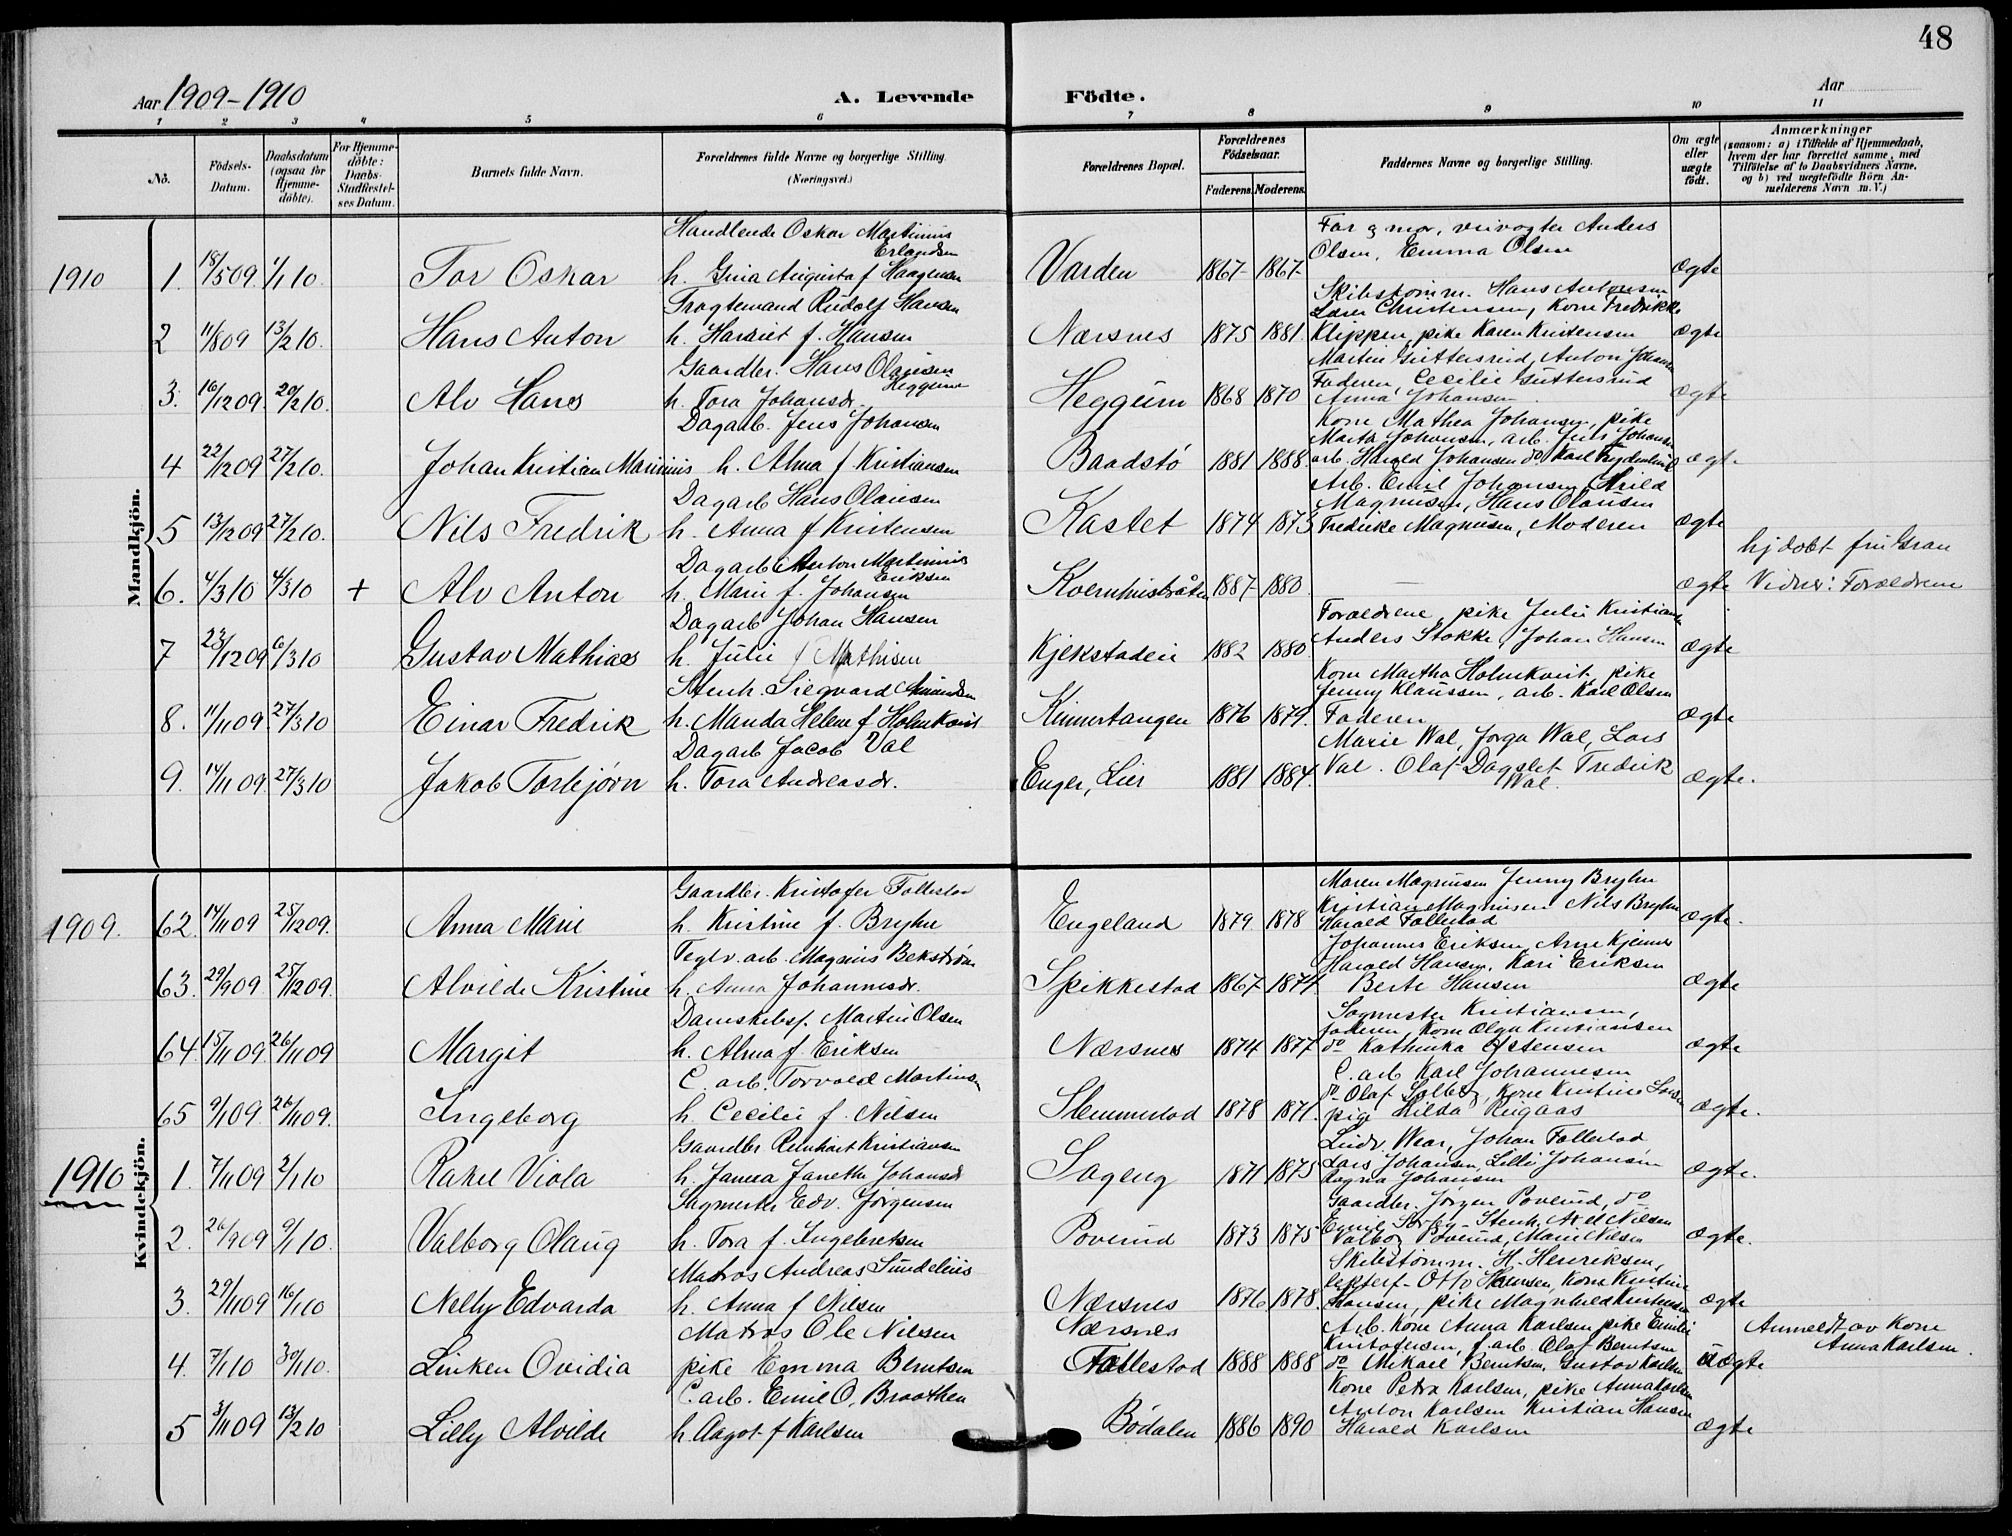 48
Aar 1909-1910
A. Levende Födte.
Aar
1 2 3 4 5 6 7 8 9 10 11
No.
Födsels-Datum.
Daabsdatum (ogsaa for Hjemme-döbte).
For Hjemme-döbte: Daabs-Stadfæstel-ses Datum.
Barnets fulde Navn.
Forældrenes fulde Navne og borgerlige Stilling.
(Næringsvei.)
Forældrenes Bopæl.
Forældrenes Födselsaar.
Faderens. Moderens.
Faddernes Navne og borgerlige Stilling.
Om ægte eller uægte födt.
Anmærkninger
(saasom: a) i Tilfælde af Hjemmedaab,
hvem der har forrettet samme, med
Tilföielse af to Daabsvidners Navne.
og b) ved uægtefödte Börn An-
melderens Navn m. V.)
Mandkjön.
1910
Handlende Oskar Martinius Erlandsen
For g mor, veivogter Anders
Olsen, Emma Olsen
1. 18/5 09 1/1 10 Tor Oskar h. Gina Augusta f Haagensen Varden 1867 1867 ægte
Fragtemand Rudolf Hansen
Skibstømm. Hans Antonsen
Laser Christensen, Kone Fredrikke
2 11/8 09 13/2 10. Hans Anton h. Harriet f. Hansen Nærsnes 1875 1881 Klippen, pike Karen Kristensen ægte
Gaardbr. Hans Olausen Heggum
Martin Guttersrud, Anton Johansen
Faderen, Cecilie Guttersrud
3. 16/12 09 20/2 10. Alv Hans h. Tora Johansdr. Heggum 1868 1870 Anna Johansen ægte
Dagarb. Jens Johansen
Kone Mathea Johansen, pike
Marta Johansen, arb. Jens Johansen
4 22/12 09 27/2 10. Johan Kristian Marinius h. Alma f Kristiansen Baadstø 1881 1888 arb. Harald Johansen do. Karl Frydenlund ægte
Dagarb Hans Olausen
Arb. Emil Johansen,
Magnusen, Hans Olausen
5 13/12 09 27/2 10. Nils Fredrik h. Anna f Kristensen Kastet 1874 1873 Fredrikke Magnusen, Moderen ægte
Dagarb Anton Martinius Eriksen
hjdøbt fru Gran
6. 4/3 10 4/3 10 + Alv Anton h. Marie f. Johansen Kvernhusbråten 1887 1880 — ægte Vidner: Forældrene
Dagarb Johan Hansen
Forældrene, pike Julie Kristiansen
Anders Stokke, Johan Hansen
7 23/12 09 6/3 10 Gustav Mathias h. Julie f Mathisen Kjekstadeie 1882 1880 ægte
Stenh. Siegvard Amundsen
Kone Martha Holmkvist, pike
Jenny Klaussen, arb. Karl Olsen
8. 11/11 09 27/3 10 Einar Fredrik h. Manda Helene f Holmkvist Kinnertangen 1876 1879 Faderen ægte
Dagarb Jacob Val
Marie Wal, Jorga Wal, Lars
Val. Olaf Dagslet Fredrik Wal.
9. 14/11 09 27/3 10 Jakob Torbjørn h. Tora Andreasdr. Enger, Lier 1881 1884. ægte.
Kvindekjön.
1909.
Gaardbr. Kristofer Follestad
Maren Magnusen Jenny Bryhn
Kristian Magnusen Nils Bryhn
62. 14/11 09 25/12 09. Anna Marie h. Kristine f. Bryhn Engeland 1879 1878 Harald Follestad ægte.
Teglv. arb. Magnus Bekstrøm
Johannes Eriksen, Arne Kjennes
Harald Hansen, Kari Eriksen
63. 29/9 09 25/12 09. Alvilde Kristine h. Anna Johannesdr. Spikkestad 1867 1874 Berte Hansen ægte
Damskibsf. Martin Olsen
Sagmester Kristiansen,
faderen, Kone Olga Kristiansen
64 15/11 09 26/11 09 Margit h. Alma f. Eriksen Nærsnes 1874 1877 do Kathinka Ostensen ægte
C. arb. Torvald Martinsen
C. arb Karl Johannesen
do Olaf Solberg, Kone Kristine Larsen
65 9/1 09 26/11 09. Ingeborg h. Cecilie f. Nilsen Slemmestad 1878 1871. pige Hilda Rugaas ægte.
1910
Gaardbr Reinhart Kristiansen
Johan Follestad
Lars Johansen, Lilli Johansen
1. 7/11 09 2/1 10 Rakel Viola h. Janna Janethe Johansdr Sageng 1871 1875 Ragna Johansen ægte.
Sagmester Edv. Jørgensen
Gaardbr. Jørgen Poverud, do
Emil Sørby - Stenh. Axel Nilsen
2. 26/9 09 9/1 10. Valborg Olaug h. Tora f. Ingebretsen Poverud 1873 1875 Valborg Poverud, Marie Nilsen ægte.
Matros Andreas Sundelius
Skibstømm. H. Henriksen,
Otto Hansen, Kone Kristine
3. 29/11 09 16/1 10 Nelly Edvarda h. Anna f Nilsen Nærsnes 1876 1878. Hansen, pike Magnhild Kristensen ægte
Matros Ole Nilsen Nærsnes
Arb. Kone Anna Karlsen pike Emilie
Kristofersen, f. arb. Olaf Berntsen
Anmeldt av Kone
Anna Karlsen.
4. 7/1 10 30/1 10. Linken Ovidia pike Emma Berntsen Follestad 1888 1888 do Mikael Berntsen, Gustav Karlsen uægte
C. arb. Emil O. Braathen
Kone Petra Karlsen, pike Anna Karlsen
Anton Karlsen Kristian Hansen
5 3/11 09 13/2 10 Lilly Alvilde h. Aagot f Karlsen Bødalen 1886 1890 Harald Karlsen ægte